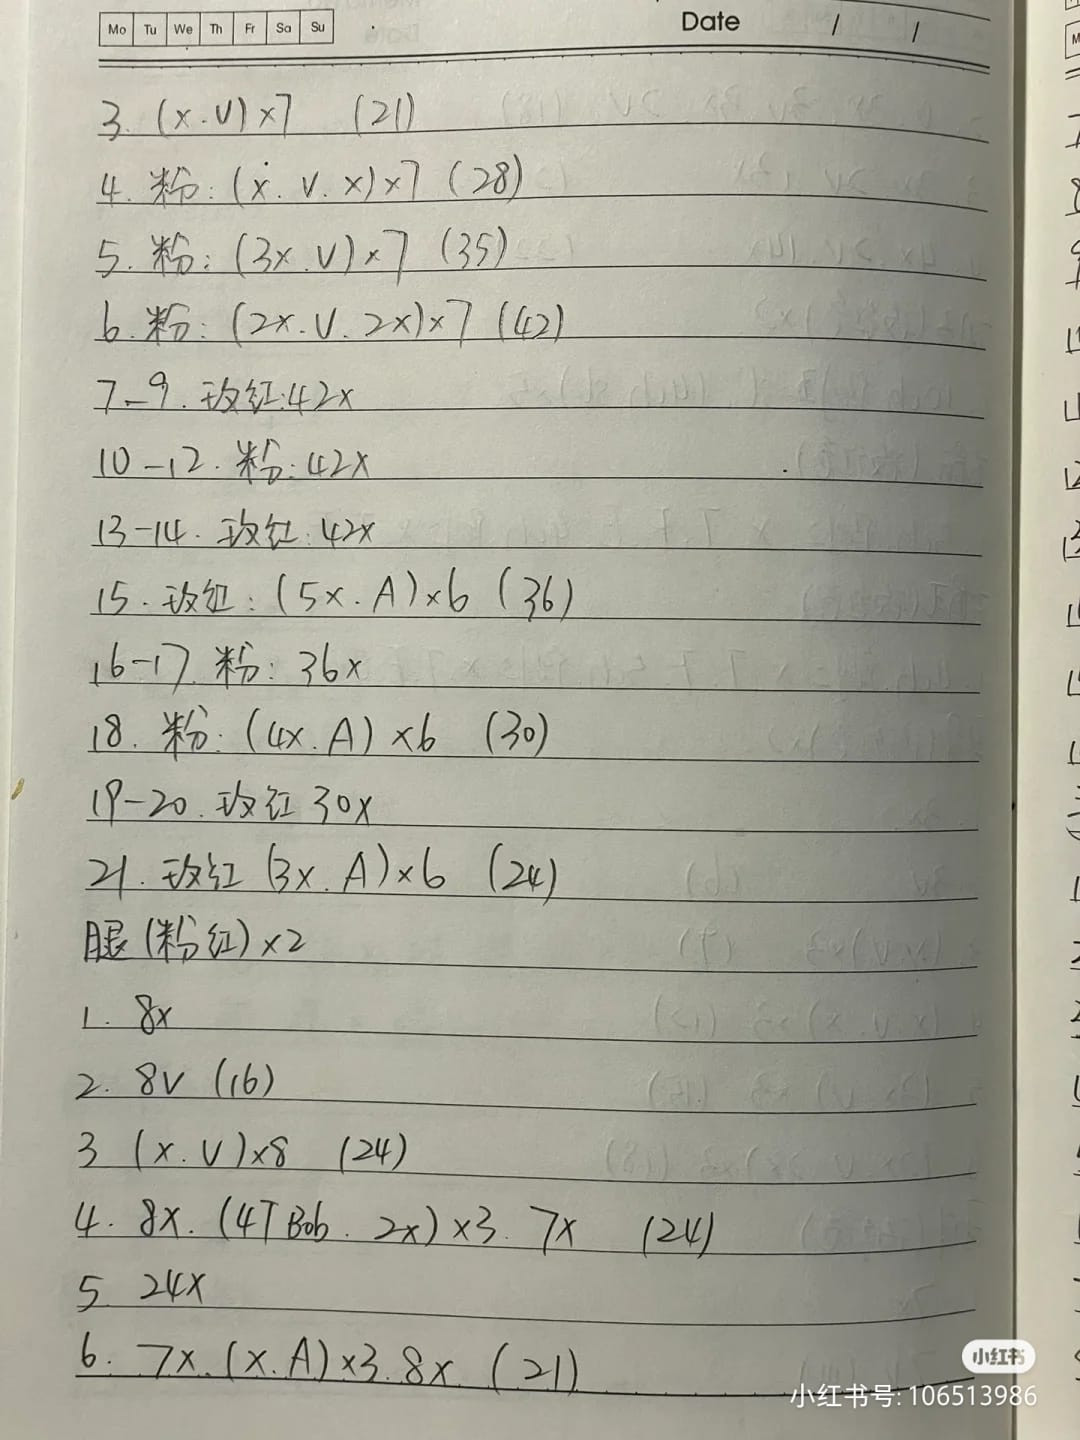 Mo Tu We Th Fr Sa Su
Date / /
3. (x.v)×7 (21)
4. 粉: (x.v.x)×7 (28)
5. 粉: (3x.v)×7 (35)
6. 粉: (2x.v.2x)×7 (42)
7-9. 玫红:42x
10-12. 粉:42x
13-14. 玫红:42x
15. 玫红: (5x.A)×6 (36)
16-17. 粉: 36x
18. 粉: (4x.A)×6 (30)
19-20. 玫红 30x
21. 玫红 (3x.A)×6 (24)
腿(粉红)×2
1. 8x
2. 8v (16)
3 (x.v)×8 (24)
4. 8x. (4TBob. 2x)×3. 7x (24)
5. 24x
6. 7x. (x.A)×3.8x. (21)
小红书
小红书号: 106513986